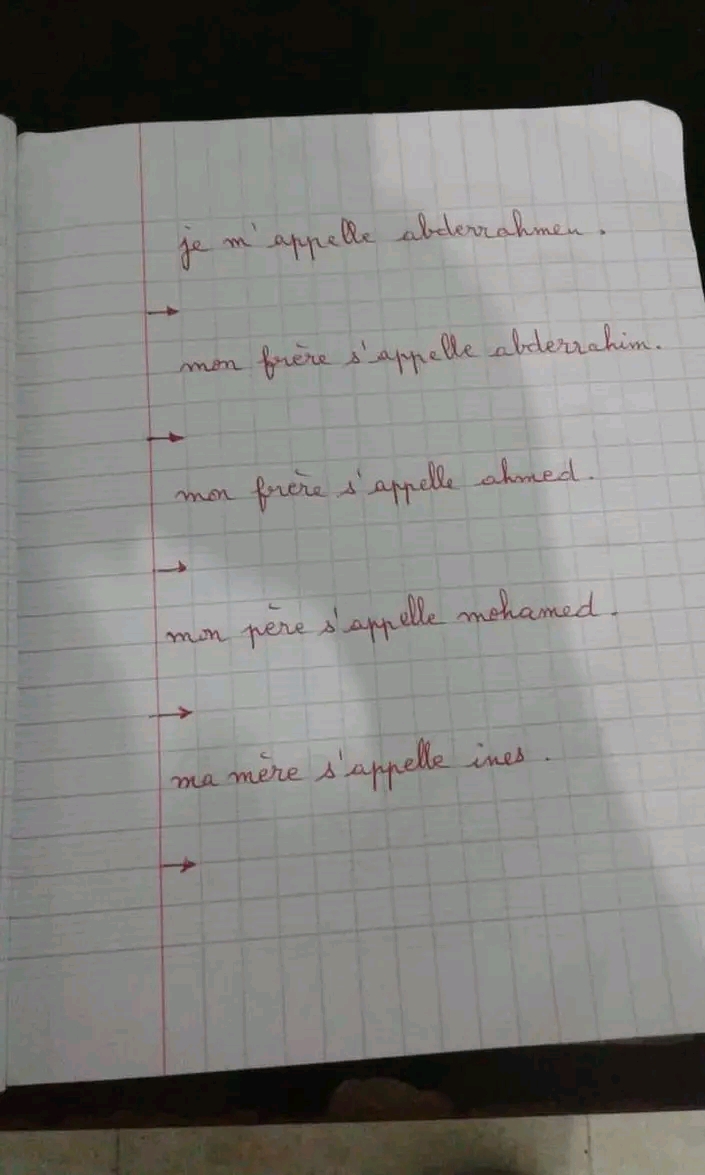 je m'appelle abderrahmen.
mon frère s'appelle abderrahim.
mon frère s'appelle ahmed.
mon père s'appelle mohamed.
ma mère s'appelle ines.